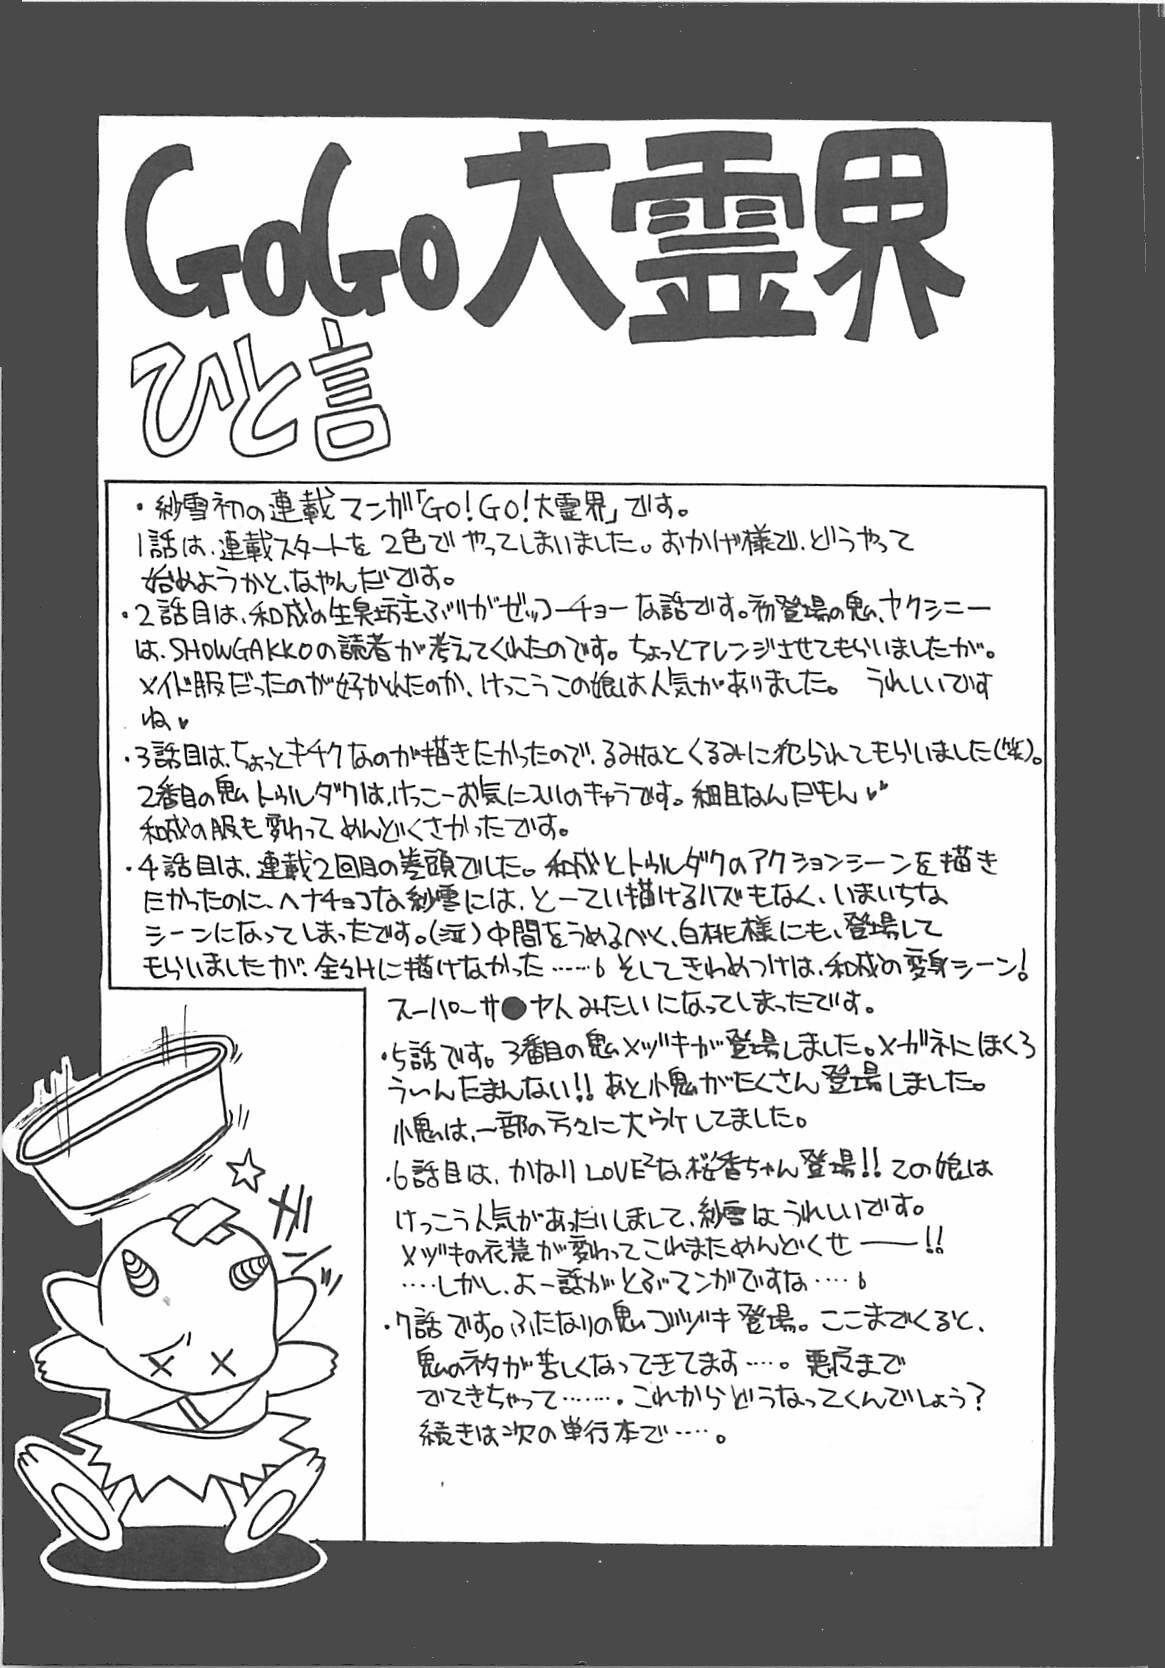 GoGo大霊界
ひと言
・紗雪初の連載マンガ「GO!GO!大霊界」です。
1話は、連載スタートを2色でやってしまいました。おかげ様で、どうやって
始めようかと、なやんだです。
・2話目は、和成の生臭坊主ぶりがゼッコーチョーな話です。初登場の鬼、ヤクシニー
は、SHOWGAKKOの読者が考えてくれたのです。ちょっとアレンジさせてもらいましたが。
メイド服だったのが好かれたのか、けっこうこの娘は人気がありました。 うれしいです
ね♥
・3話目は、ちょっとキチクなのが描きたかったので、るみなとくるみに犯られてもらいました(笑)。
2番目の鬼トゥルダクは、けっこーお気に入いのキャラです。細目なんだもん♥♥
和成の服も変わってめんどくさかったです。
・4話目は、連載2回目の巻頭でした。和成とトゥルダクのアクションシーンを描き
たかったのに、ヘナチョコな紗雪には、とーてい描けるハズもなく、いまいちな
シーンになってしまったです。(泣)中間をうめるべく、白桃様にも、登場して
もらいましたが、全々Hに描けなかった……。そしてきわめつけは、和成の変身シーン!
スーパーサ●ヤ人みたいになってしまったです。
・5話です。3番目の鬼メヅキが登場しました。メガネにほくろ
うぃんたまんない!!あと小鬼がたくさん登場しました。
小鬼は、一部の方々に大ウケしてました。
・6話目は、かなりLOVE²な、桜香ちゃん登場!!この娘は
けっこう人気があったりしまして、紗雪はうれしいです。
メヅキの衣装が変わってこれまためんどくせ――!!
……しかし、よー話がとぶマンガですな……。
・7話です。ふたなりの鬼ゴヅキ登場。ここまでくると、
鬼のネタが苦しくなってきてます……。悪魔まで
でてきちゃって……。これからどうなってくんでしょう?
続きは次の単行本で……。
キーン